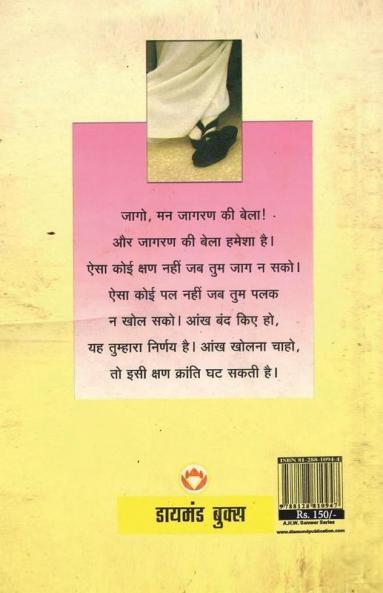 जागो, मन जागरण की बेला!
और जागरण की बेला हमेशा है।
ऐसा कोई क्षण नहीं जब तुम जाग न सको।
ऐसा कोई पल नहीं जब तुम पलक
न खोल सको। आंख बंद किए हो,
यह तुम्हारा निर्णय है। आंख खोलना चाहो,
तो इसी क्षण क्रांति घट सकती है।
ISBN 81-288-1094-4
9788128810947
Rs. 150/-
A.H.W. Sameer Series
www.diamondpublication.com
डायमंड बुक्स